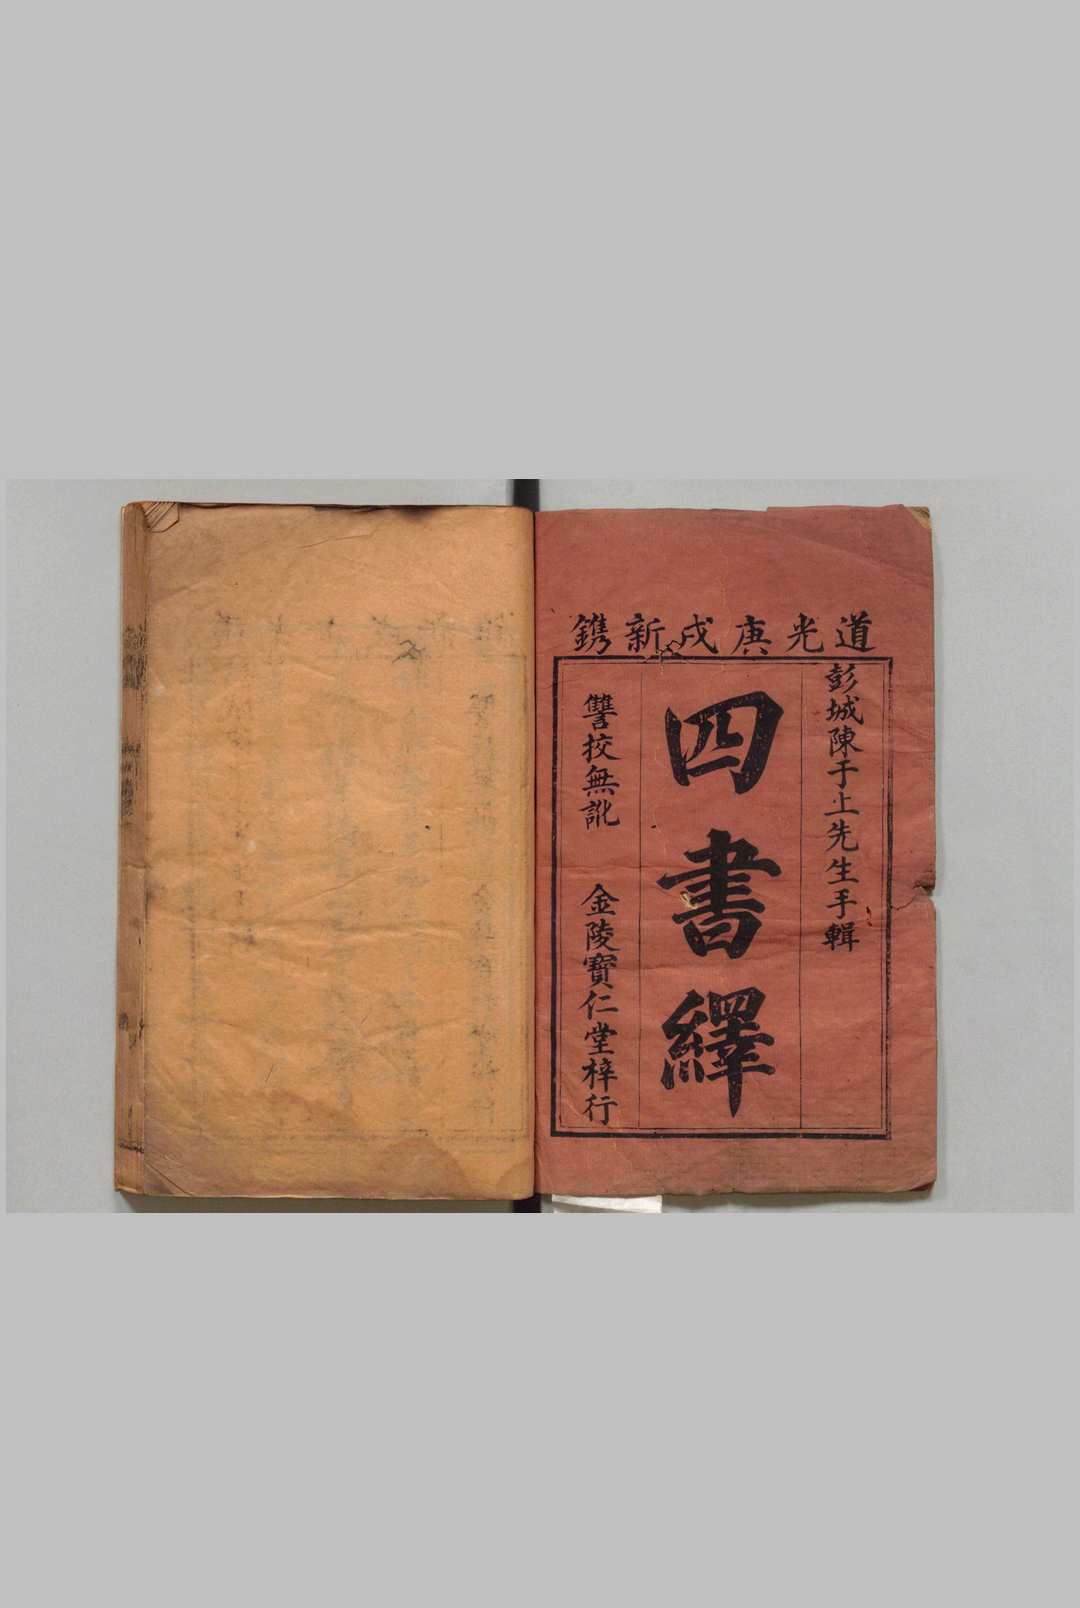 道光庚戌新鐫
彭城陳于上先生手輯
四書繹
讐挍無訛 金陵寶仁堂梓行